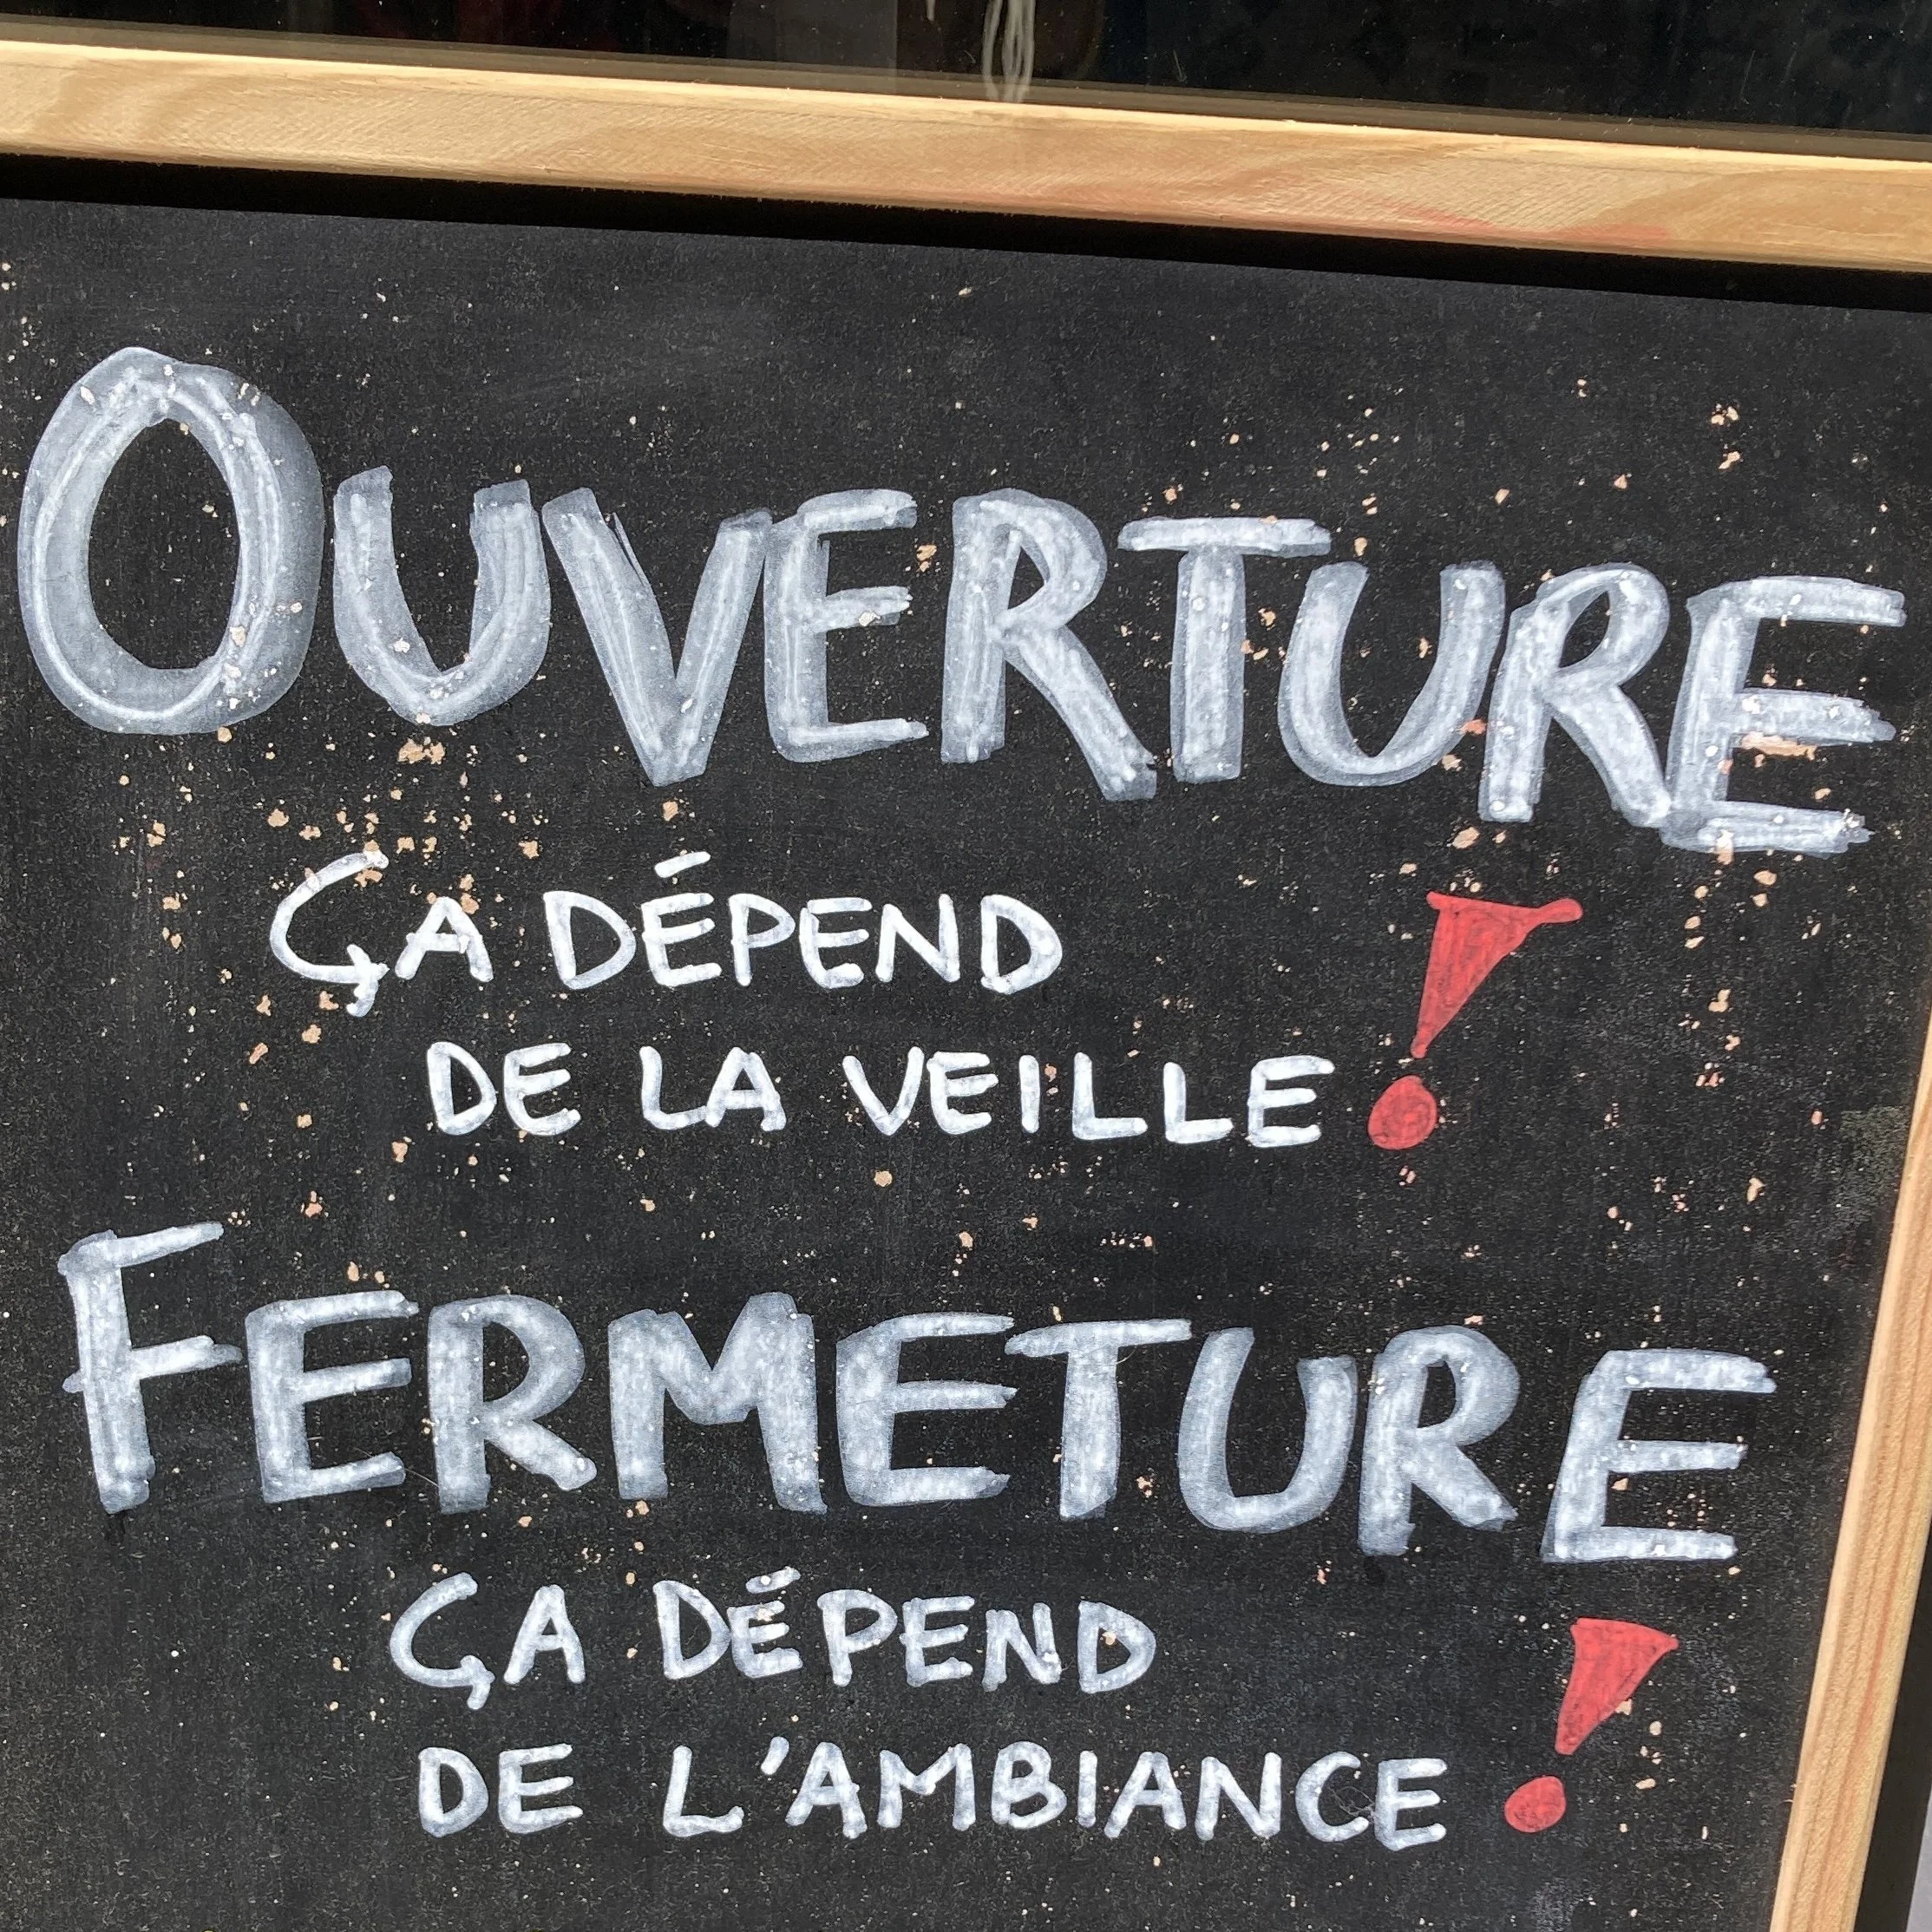 OUVERTURE
ÇA DÉPEND
DE LA VEILLE !
FERMETURE
ÇA DÉPEND
DE L'AMBIANCE !